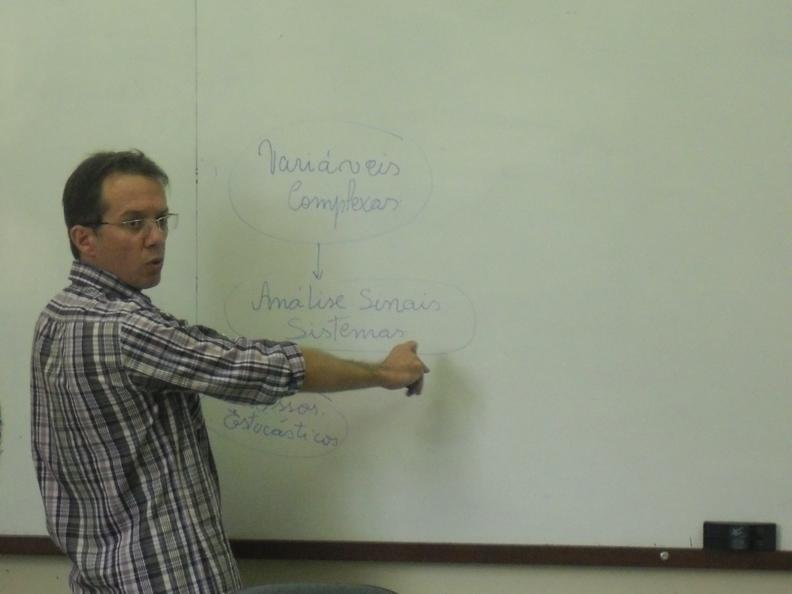 Variáveis
Complexas
Análise Sinais
Sistemas
Estocásticos